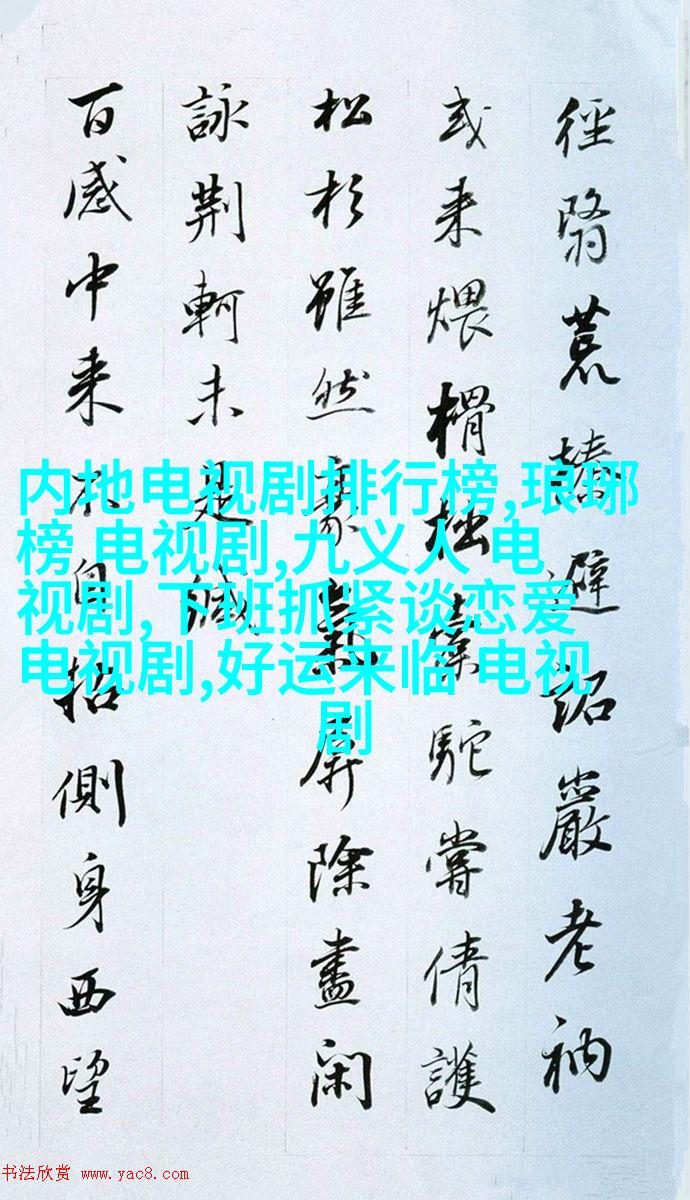 徑翳荒榛避詔嚴老衲
或来煨榾柮駝嘗倩護
松杉雖然豪氣屏除盡闲
詠荆軻未是
百感中来不自招側身西望
内地电视剧排行榜,琅琊
榜 电视剧,九义人 电
视剧,下班抓紧谈恋爱
电视剧,好运来临 电视
剧
书法欣赏 www.yac8.com